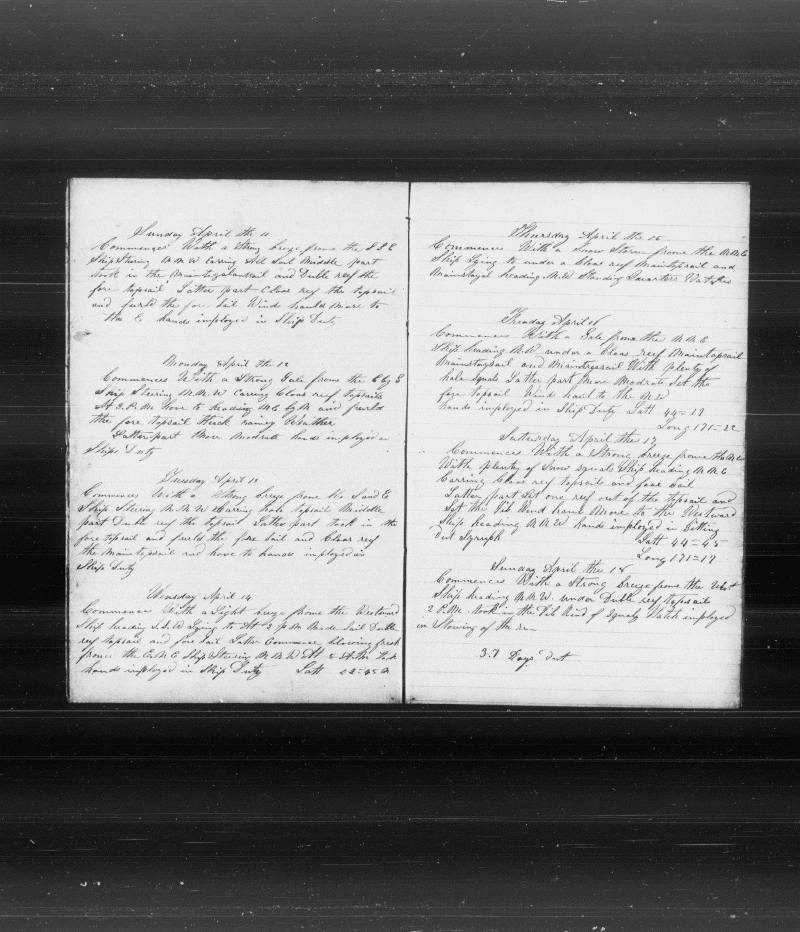 Sunday April the 11
Commences With a Strong breze frome the S S E
Ship Stering N N W Carring All Sail Middle part
took in the Maintogalansail and Duble reef the
fore topsail Latter part Close reef the topsail
and furld the fore Sail Wind hauld More to
the E. hands imployed in Ship Duty
Monday April the 12
Commences With a Strong Gale frome the E by S
Ship Stering N N W Carring Close reef topsails
At 3 P.M. hove to heading NE by N and furld
the fore topsail thick rainey Weather
Latter part More Modrate hands imployed in
Ships Duty
Tuesday April 13
Commences With a Strong breze frome the S and E
Ship Stering N N W Carring hole Topsails Middle
part Duble reef the topsail Latter part took in the
fore topsail and furld the fore Sail and Close reef
the Maintopsail and hove to hands imployed in
Ship Duty
Wensday April 14
Commences With a Light breze frome the Westward
Ship heading W.S.W Lying to At 2 P M Made Sail Duble
reef topsail and fore Sail Latter Commence blowing fresh
frome the E.N.E Ship Stering N N W At 5 A.M. took
hands imployed in Ship Duty Latt
Thursday April the 15
Commences With a Snow Storm frome the N.N.E
Ship Lying to under a Close reef Maintopsail and
Mainstaysail heading N.W Standing Quarters Watches
Freaday April 16
Commences With a Gale frome the N N E
Ship heading N.W under a Close reef Maintopsail
Mainstaysail and With plenty of
hale squals Latter part More Modrate Set the
fore topsail Wind hauld to the
hands imployed in Ship Duty Latt 44=19
Long 171=22
Saturday April the 17
Commences With a Strong breeze frome the
With plenty of Snow Squals Ship heading N N E
Carring Close reef topsail and fore Sail
Latter part Let one reef out of the topsail and
Set the Jib Wind hauld More to the Westward
Ship heading N N W hands imployed in Gitting
Out
Latt 44=45
Long 171=17
Sunday April the 18
Commences With a Strong breeze frome the West
Ship heading N.N.W. under Duble reef topsails
2 P.M. took in the Jib Kind of Squaly Watch imployed
in Stowing of the
37 Days Out